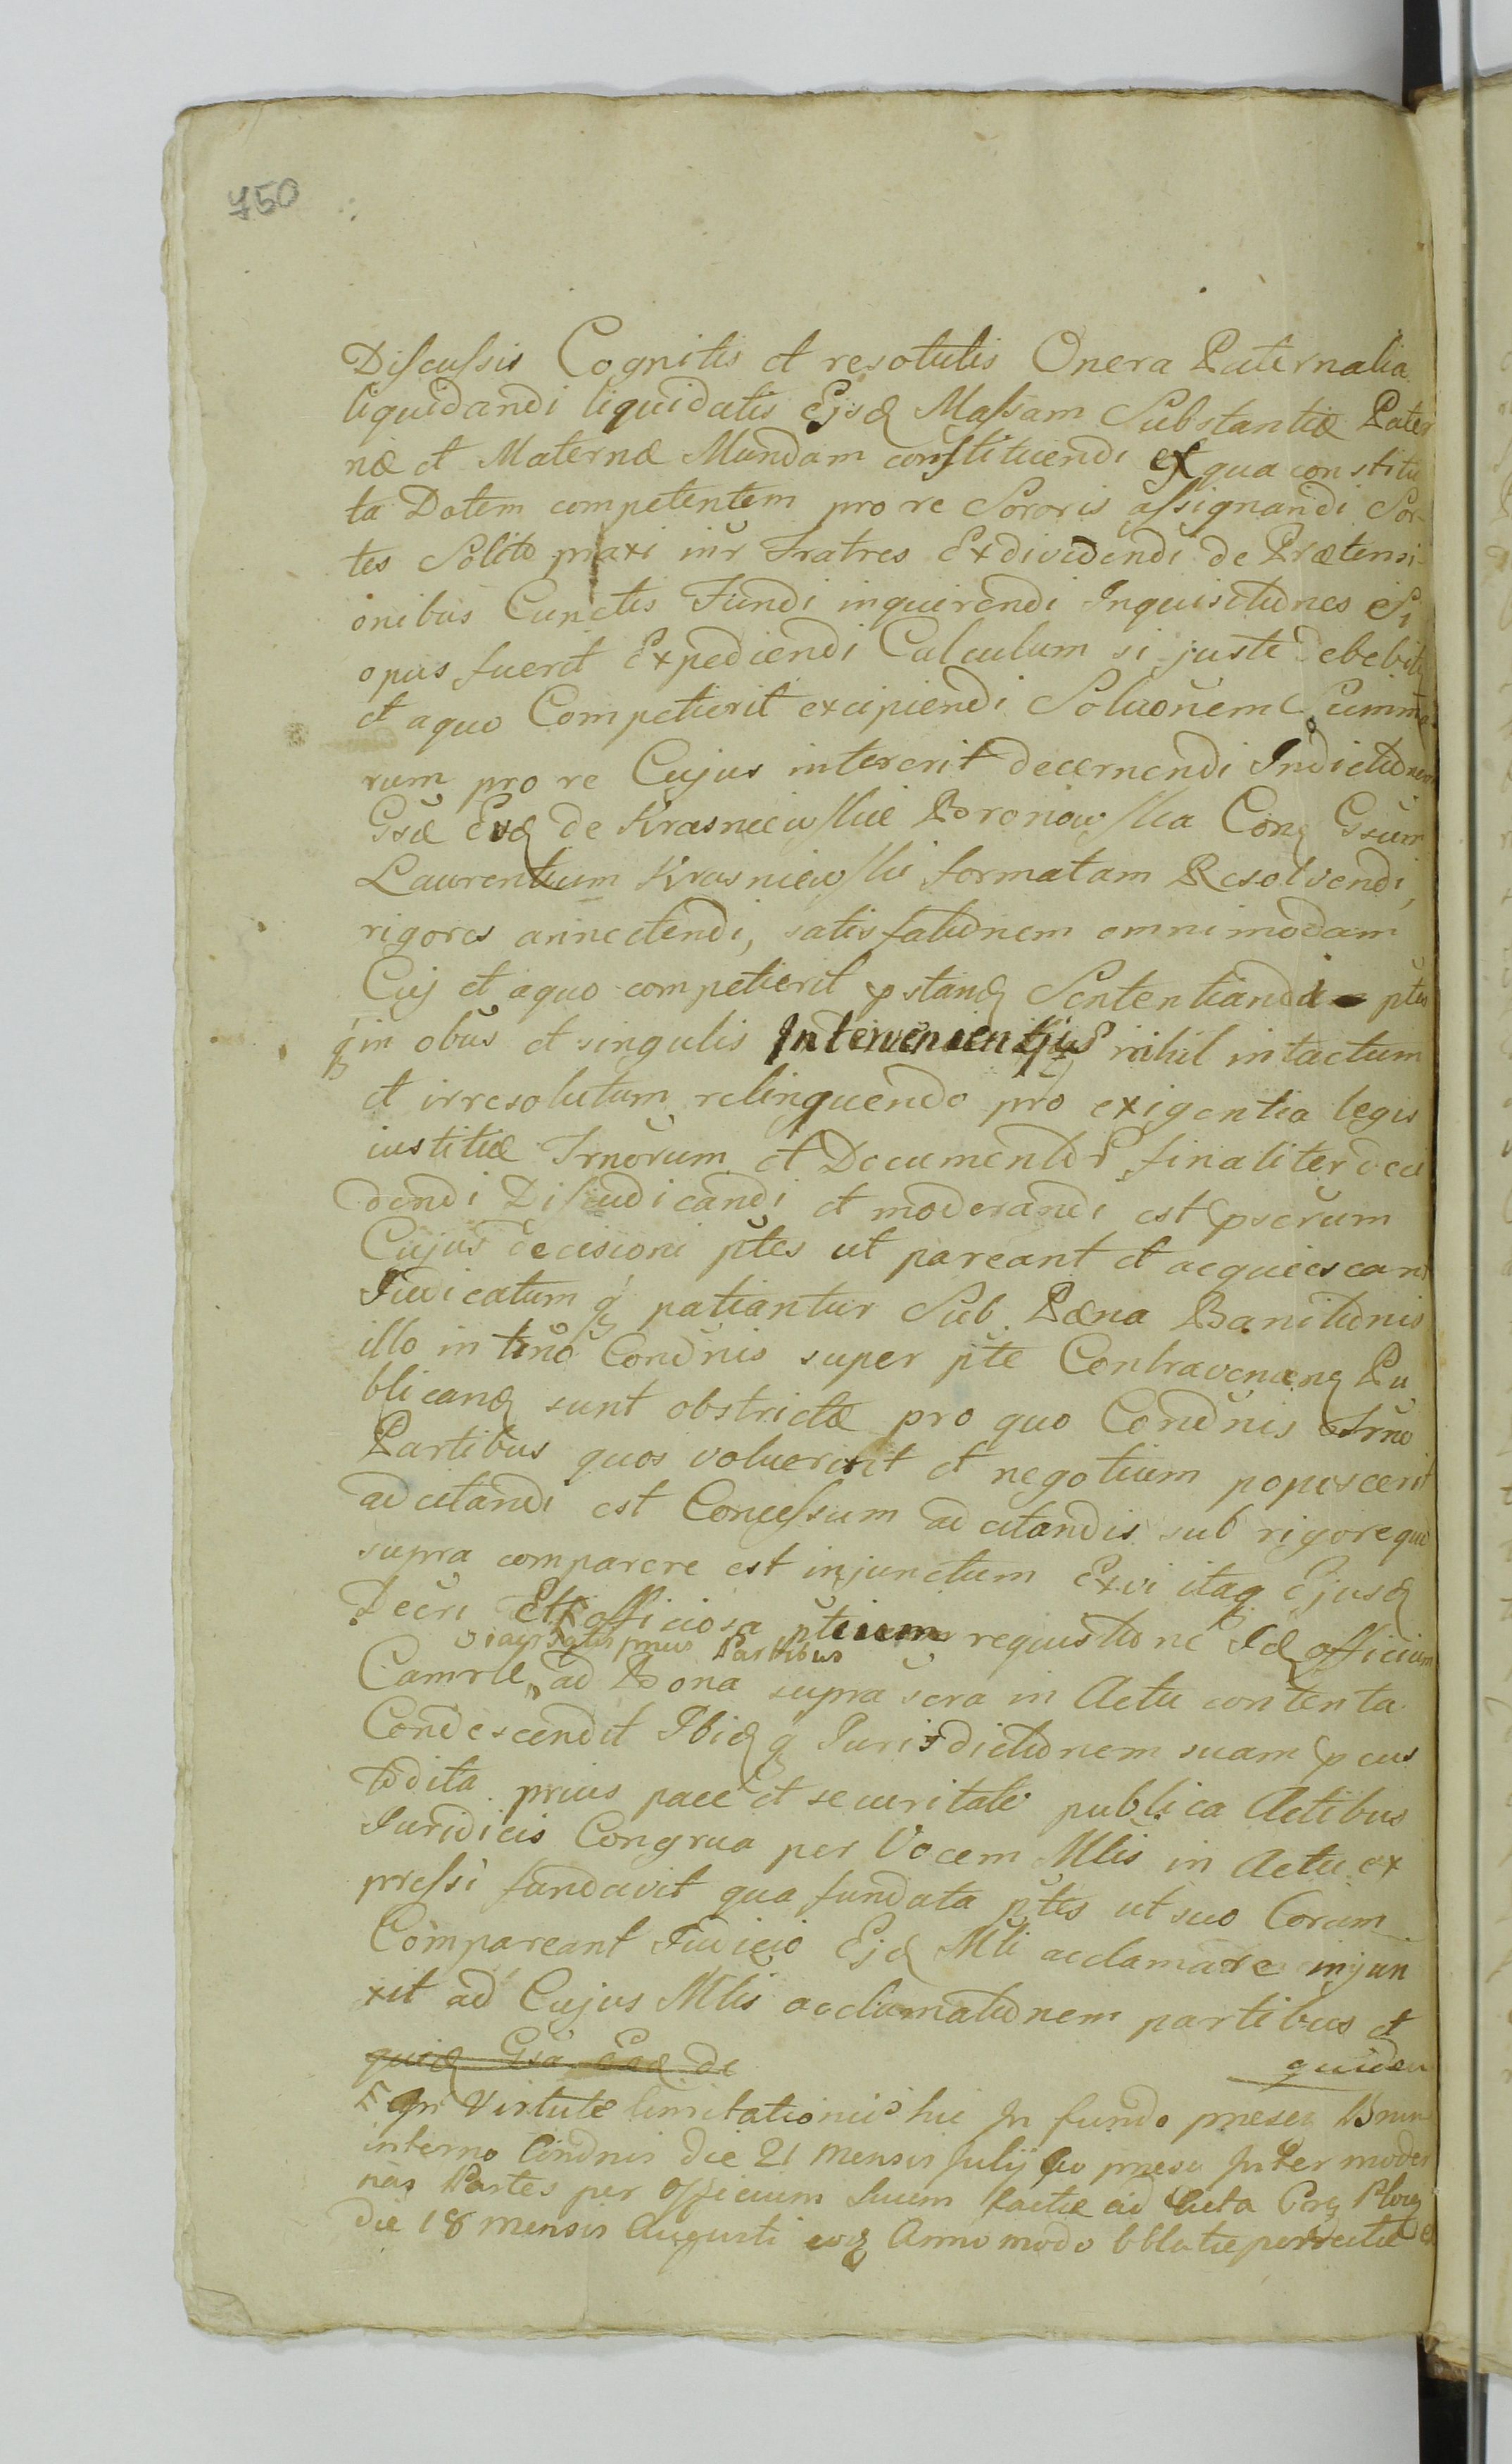 750
Discussis Cognitis et resolutis Onera Paternalia
liquidandi liquidatis Ejsd Massam Substantiæ Pater
næ et Maternæ Mundam constituendi ex qua constitu
ta Dotem competentem pro re Sororis assignandi Sor-
tes Solito praxi intr Fratres Exdividendi de Prætensi-
onibus Cunctis Fundi inquirendi Inquisitiones Si
opus fuerit Expediendi Calculum si juste debebit
et a quo Competierit excipiendi Soluonem Summa
rum pro re Cujus intererit decernendi Indictionem
Gsæ Evæ de Krasniewskie Broniowska Con Gsum
Laurentium Krasniewski formatam Resolvendi,
rigores annectendi, satisfationem omnimodam
Cuj et a quo competierit pstand Sententiandi ptes
q in obus et singulis Intervenientijs nihil intactum
et irresolutum relinquendo pro exigentia legis
iustitiæ Trnorum et Documentor finaliter deci
dendi Dijudicandi et moderandi est pserum
Cujus decisioni ptes ut pareant et acquiescant
Iudicatum q patiantur Sub Pæna Banitionis
illo in trno Condnis super pte Contravenien Pu
blicand sunt obstrictæ pro quo Condnis Trno
Partibus quos voluerint et negotium poposcerit
adcitandi est Concessum adcitandis sub rigore quo
supra comparere est injunctum Ex vi itaq Ejusd
Decri Et officiosa ptium requisitione Id officium
prius Partibus
Camrle ad Bona supra scra in Actu contenta
Condescendit Ibidq Jurisdictionem suam p cus
todita prius pace et securitate publica Actibus
Juridicis Congrua per Vocem Mlis in Actu ex
pressi fundavit qua fundata ptes ut suo Coram
Compareant Iudicio Ejd Mli acclamare injun
xit ad Cujus Mlis acclamationem partibus et
quid Gsa Eva de
quidem
virtute limitationis hic In fundo presen Bnrum
in termo Condnis die 21 Mensis Julij Ao presen Inter moder
nas Partes per Officium suum factæ ad Acta
die 18 Mensis Augusti eod Anno modo oblatæ porrectæ